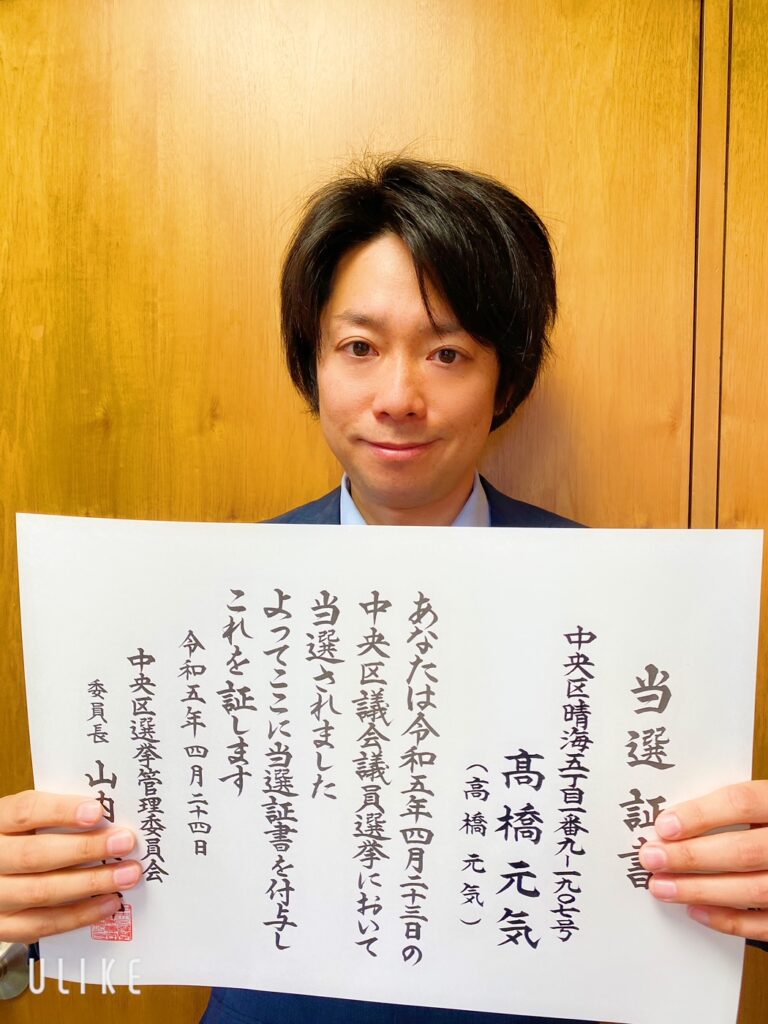 当選証書
中央区晴海五丁目一番九-一九〇七号
髙橋元気
(高橋元気)
あなたは令和五年四月二十三日の
中央区議会議員選挙において
当選されました
よってここに当選証書を付与し
これを証します
令和五年四月二十四日
中央区選挙管理委員会
委員長 山内
ULIKE